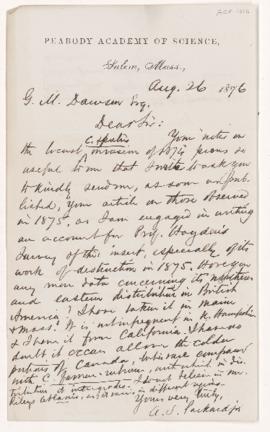 PEABODY ACADEMY OF SCIENCE,
Salem, Mass., Aug. 26 1876
G. M. Dawson Esq.
Dear Sir:
Your notes on
C. spretus
the locust invasion of 1874 prove so
useful to me that I write to ask you
to kindly send me, as soon as pub-
lished, your article on those observed
in 1875, as I am engaged in writing
an account for Prof. Hayden's
Survey of this insect, especially of its
work of destruction in 1875. Have you
any more data concerning its northern
and eastern distribution in British
America? I have taken it in Maine
& Mass. It is not infrequent in N. Hampshire
& I have it from California. I have no
doubt it occurs all over the colder
portions of Canada, but is rare compared
with C. femur-rubrum, with which in dis-
tribution it I do not believe in Mr.
Riley's
Yours very truly,
A. S. Packard Jr